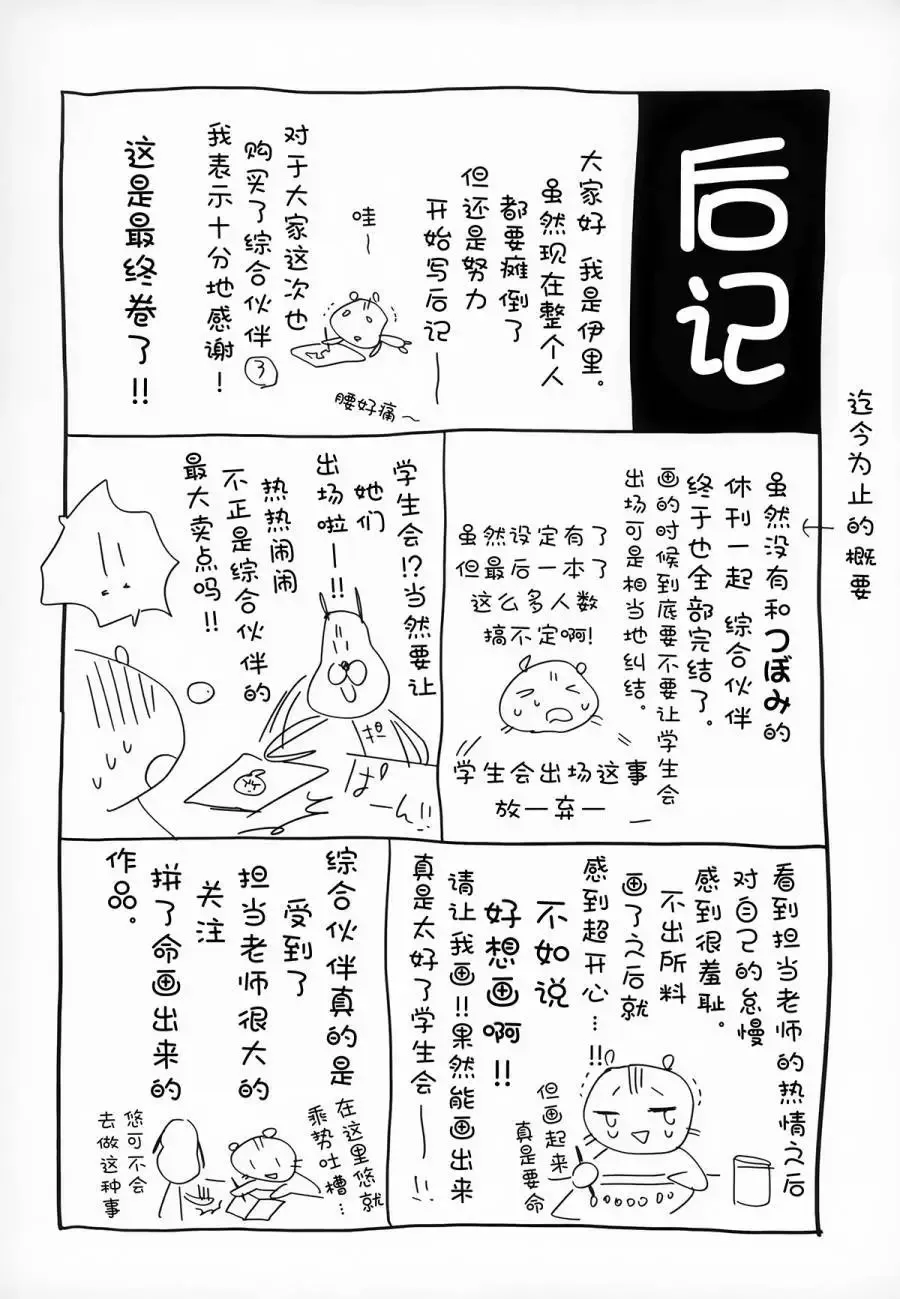 后记
大家好 我是伊里。
虽然现在整个人
都要瘫倒了
但还是努力
开始写后记——
哇~
腰好痛~
对于大家这次也
购买了综合伙伴③
我表示十分地感谢！
这是最终卷了!!
迄今为止的概要
虽然没有和つぼみ的
休刊一起 综合伙伴
终于也全部完结了。
画的时候到底要不要让学生会
出场可是相当地纠结。
虽然设定有了
但最后一本了
这么多人数
搞不定啊!
学生会出场这事
放一弃一
学生会!?当然要让
她们
出场啦—!!
热热闹闹
不正是综合伙伴的
最大卖点吗!!
担
ぱーん!!
看到担当老师的热情之后
对自己的怠慢
感到很羞耻。
不出所料
画了之后就
感到超开心…!!
不如说
好想画啊!!
请让我画!!果然能画出来
真是太好了学生会——!!
但画起来
真是要命
综合伙伴真的是
受到了
担当老师很大的
关注
拼了命画出来的
作品。
在这里悠就
乘势吐槽…
悠可不会
去做这种事